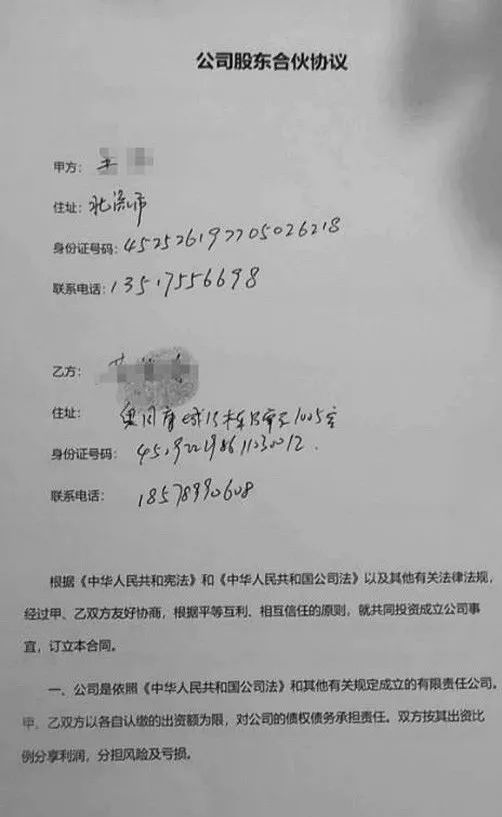 公司股东合伙协议
甲方：王
住址：北流市
身份证号码：452526197705026218
联系电话：13517556698
乙方：
住址：
身份证号码：
联系电话：18578990608
根据《中华人民共和宪法》和《中华人民共和国公司法》以及其他有关法律法规，
经过甲、乙双方友好协商，根据平等互利、相互信任的原则，就共同投资成立公司事
宜，订立本合同。
一、公司是依照《中华人民共和国公司法》和其他有关规定成立的有限责任公司。
甲、乙双方以各自认缴的出资额为限，对公司的债权债务承担责任。双方按其出资比
例分享利润，分担风险及亏损。